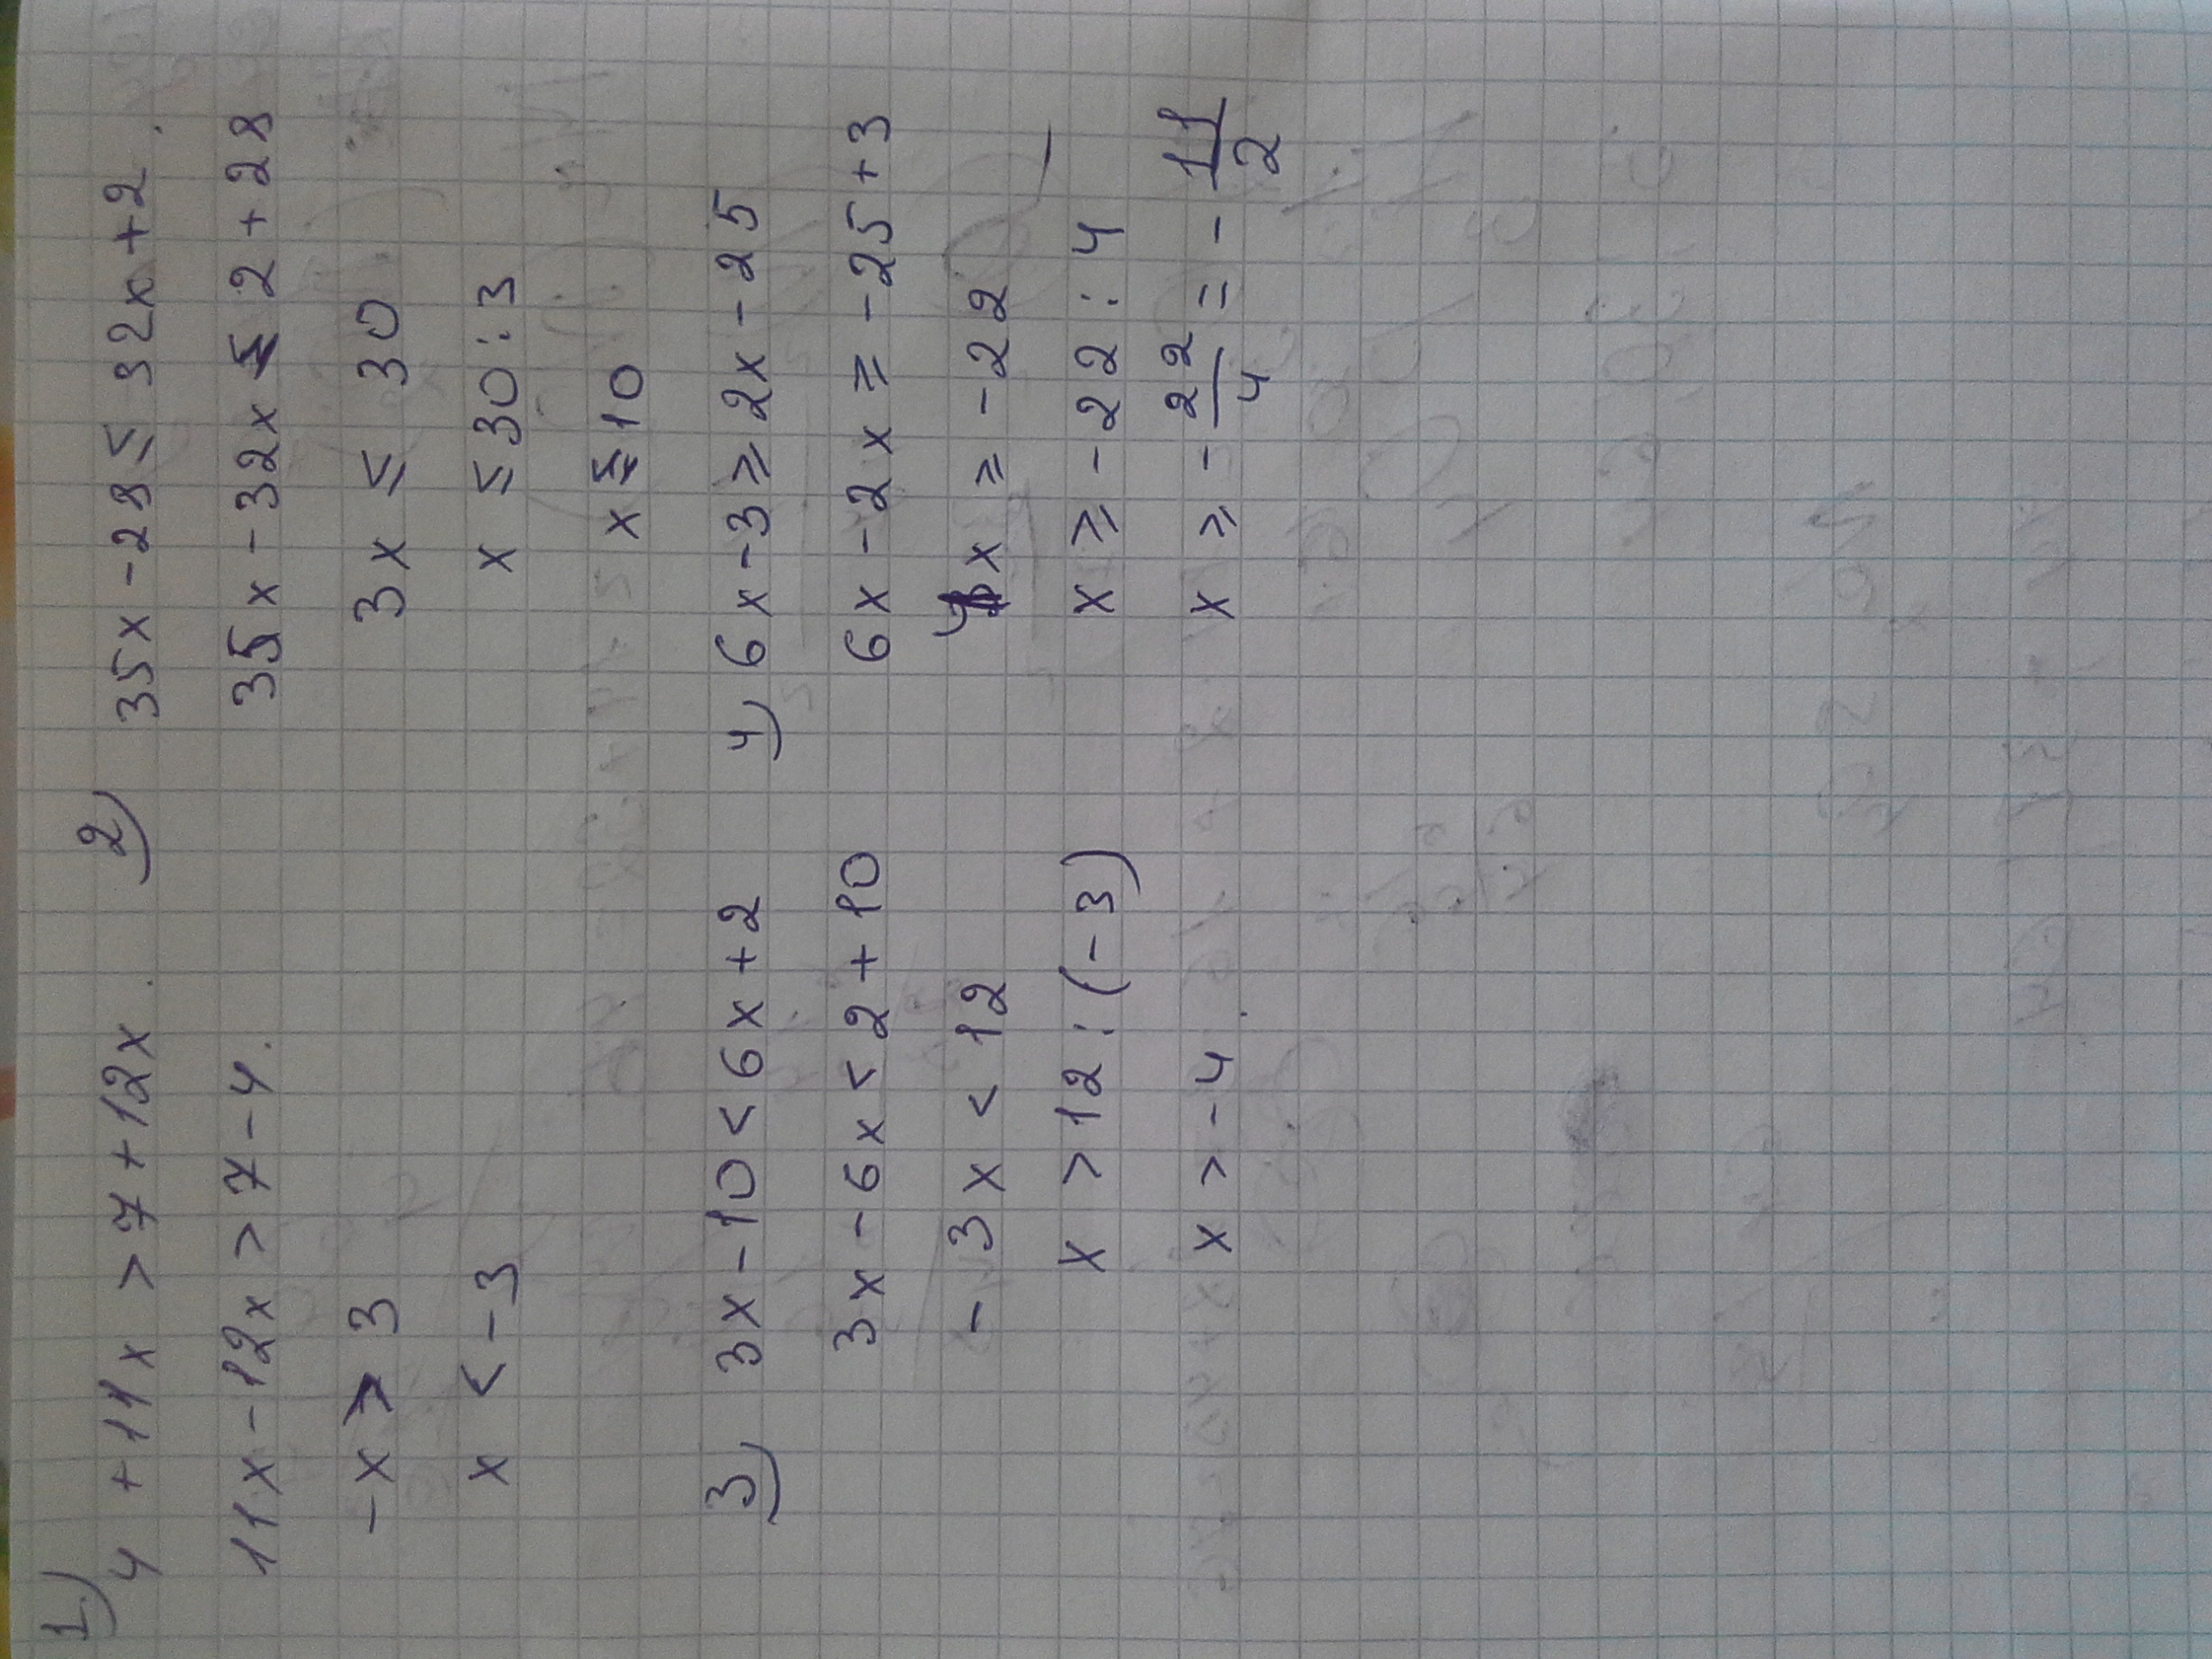 1)
4 + 11x > 7 + 12x.
11x - 12x > 7 - 4.
-x > 3
x < -3
2) 35x - 28 ≤ 32x + 2.
35x - 32x ≤ 2 + 28
3x ≤ 30
x ≤ 30 : 3
x ≤ 10
3) 3x - 10 < 6x + 2
3x - 6x < 2 + 10
-3x < 12
x > 12 : (-3)
x > -4.
4) 6x - 3 ≥ 2x - 25
6x - 2x ≥ -25 + 3
4x ≥ -22
x ≥ -22 : 4
x ≥ -22/4 = -11/2